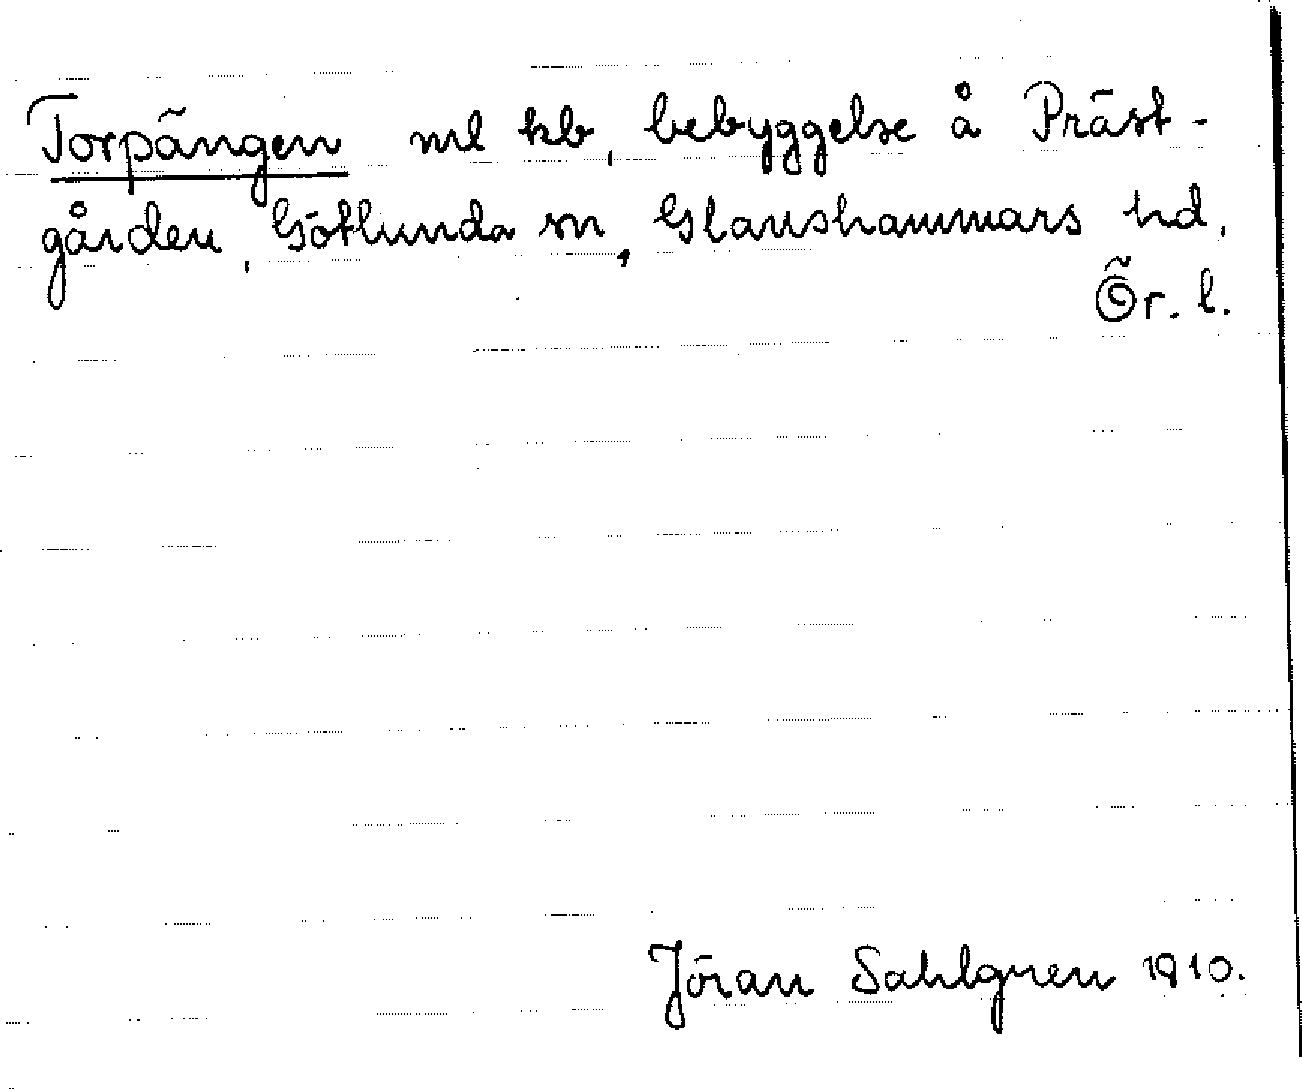 Torpängen ml kb, bebyggelse å Präst-
gården, Götlunda sn, Glanshammars hd,
Ör. l.
Jöran Sahlgren 1910.